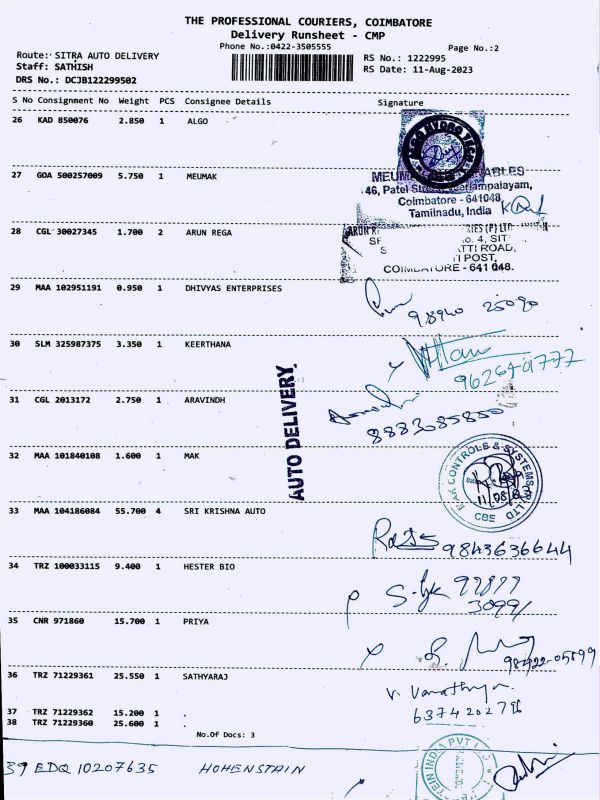 THE PROFESSIONAL COURIERS, COIMBATORE
Delivery Runsheet - CMP
Phone No.:0422-3505555 Page No.:2
Route: SITRA AUTO DELIVERY RS No.: 1222995
Staff: SATHISH RS Date: 11-Aug-2023
DRS No.: DCJB122299502
S No Consignment No Weight PCS Consignee Details Signature
26 KAD 850076 2.850 1 ALGO
ALGO HYDRO TECH
27 GOA 500257009 5.750 1 MEUMAK
46, Patel
Coimbatore - 641048,
Tamilnadu, India
28 CGL 30027345 1.700 2 ARUN REGA
No. 4, SIT
ROAD,
POST,
COIMBATORE - 641 048.
29 MAA 102951191 0.950 1 DHIVYAS ENTERPRISES
98940 25090
30 SLM 325987375 3.350 1 KEERTHANA
9626401777
31 CGL 2013172 2.750 1 ARAVINDH
8883085850
AUTO DELIVERY
32 MAA 101840108 1.600 1 MAK
MAK CONTROLS & SYSTEMS
LTD
CBE
33 MAA 104186084 55.700 4 SRI KRISHNA AUTO
9843636644
34 TRZ 100033115 9.400 1 HESTER BIO
35 CNR 971860 15.700 1 PRIYA
36 TRZ 71229361 25.550 1 SATHYARAJ
37 TRZ 71229362 15.200 1 .
38 TRZ 71229360 25.600 1 .
No.Of Docs: 3
39 EDQ 10207635 HOHENSTAIN